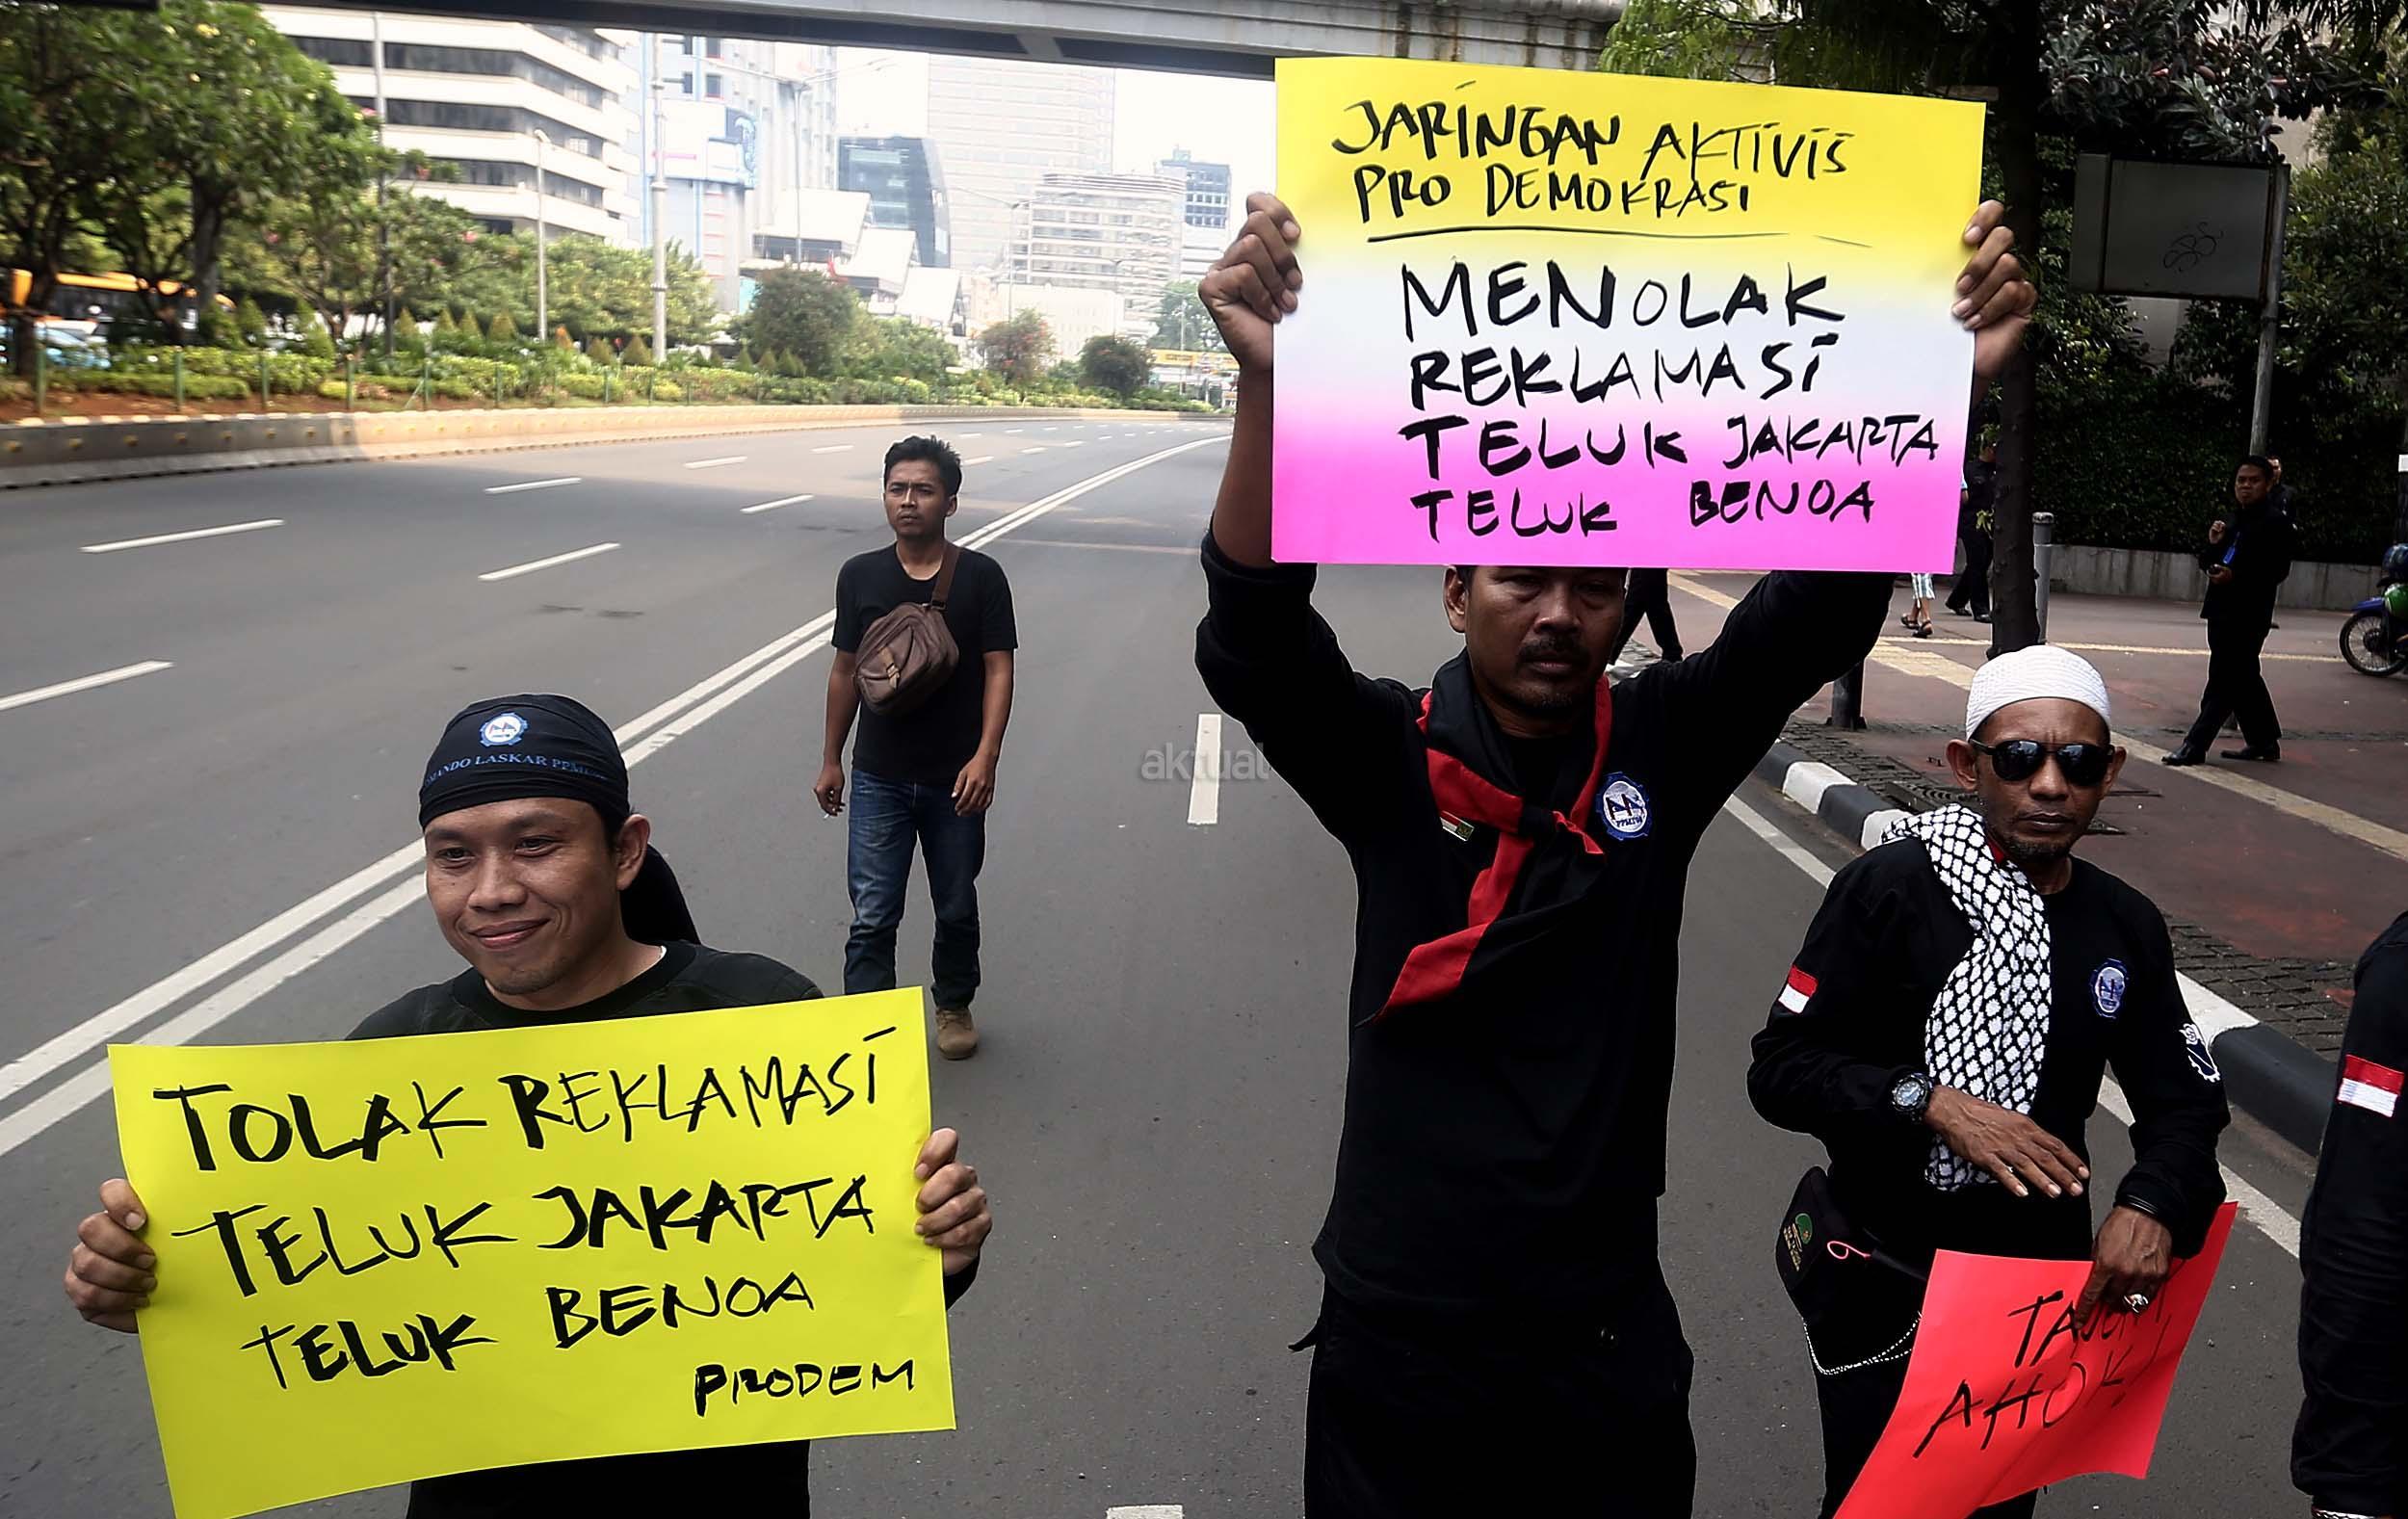 JARINGAN AKTIVIS
PRO DEMOKRASI
MENOLAK
REKLAMASI
TELUK JAKARTA
TELUK BENOA
aktual
LASKAR
TOLAK REKLAMASI
TELUK JAKARTA
TELUK BENOA
PRODEM
AHOK!